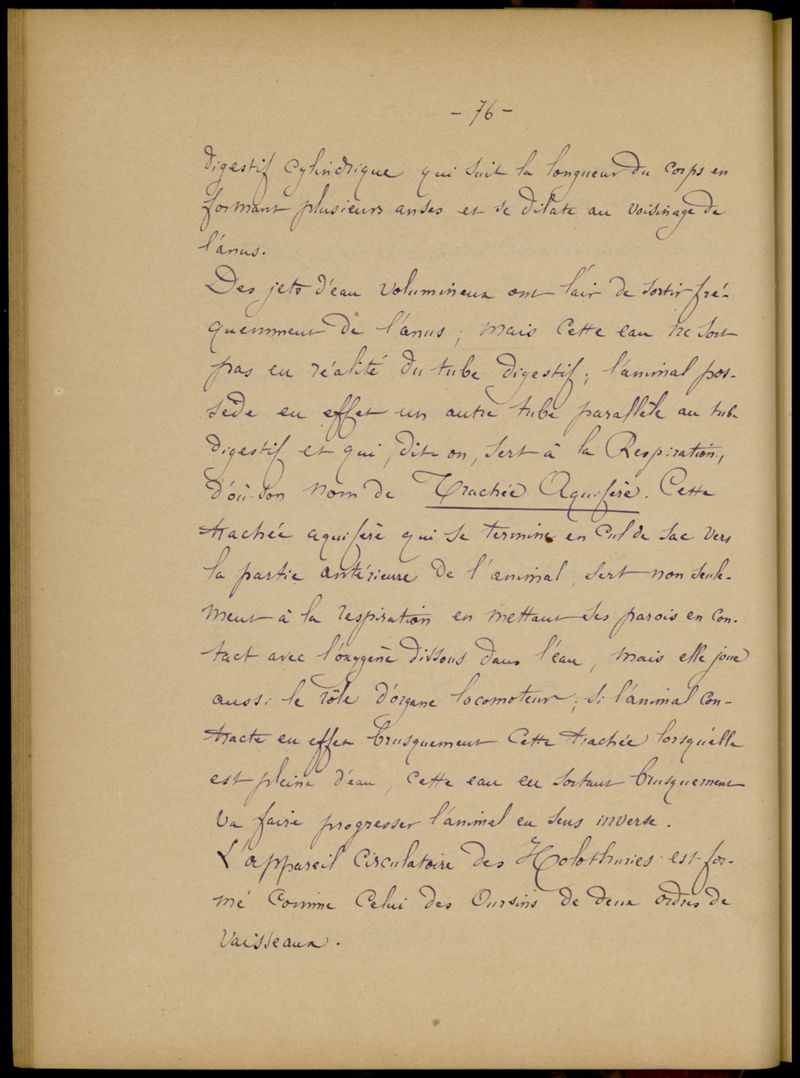 - 76 -
digestif cylindrique qui suit la longueur du corps en
formant plusieurs anses et se dilate au voisinage de
l'anus.
Des jets d'eau volumineux ont l'air de sortir fré-
quemment de l'anus ; mais cette eau ne sort
pas en réalité du tube digestif ; l'animal pos-
sède en effet un autre tube parallèle au tube
digestif et qui, dit-on, sert à la Respiration,
d'où son nom de Trachée Aquifère. Cette
trachée aquifère qui se termine en cul de sac vers
la partie antérieure de l'animal, sert non seule-
ment à la respiration en mettant ses parois en con-
tact avec l'oxygène dissous dans l'eau, mais elle joue
aussi le rôle d'organe locomoteur ; si l'animal con-
tracte en effet brusquement cette trachée lorsqu'elle
est pleine d'eau, cette eau en sortant brusquement
va faire progresser l'animal en sens inverse.
L'appareil circulatoire des Holothuries est for-
mé comme celui des Oursins de deux ordres de
vaisseaux.